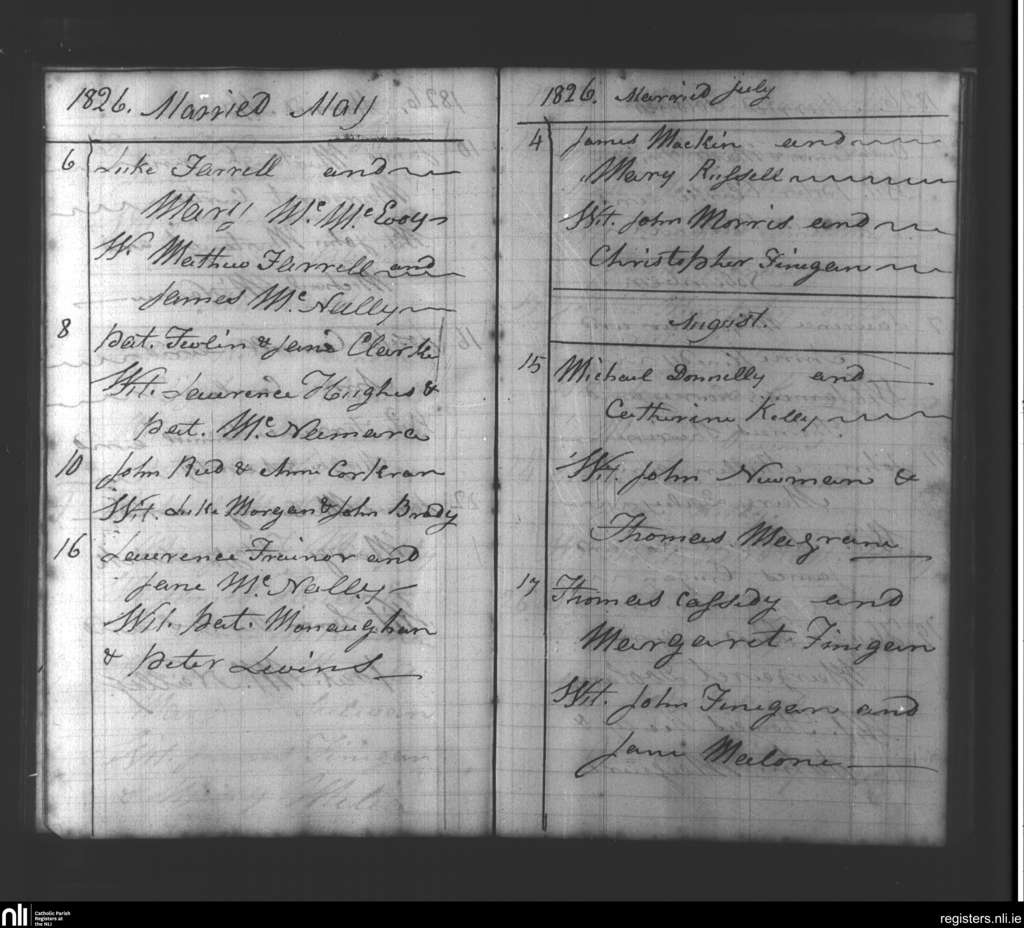 1826. Married May
6 Luke Farrell and
Mary Mc McEvoy
W. Mathew Farrell and
James McNally
8 Pat. Feolin & Jane Clarke
Wit. Lawrence Hughes &
Pat. McNamara
10 John Reed & Ann Corkran
Wit. Luke Morgan & John Brady
16 Lawrence Trainor and
Jane McNally
Wit. Pat. Monaughan
& Peter Levins
1826. Married July
4 James Mackin and
Mary Russell
Wit. John Morris and
Christopher Finegan
August.
15 Michael Donnelly and
Catherine Kelly
Wit. John Newman &
Thomas Magrane
17 Thomas Cassidy and
Margaret Finegan
Wit. John Finegan and
Jane Malone
nli Catholic Parish
Registers at
the NLI
registers.nli.ie